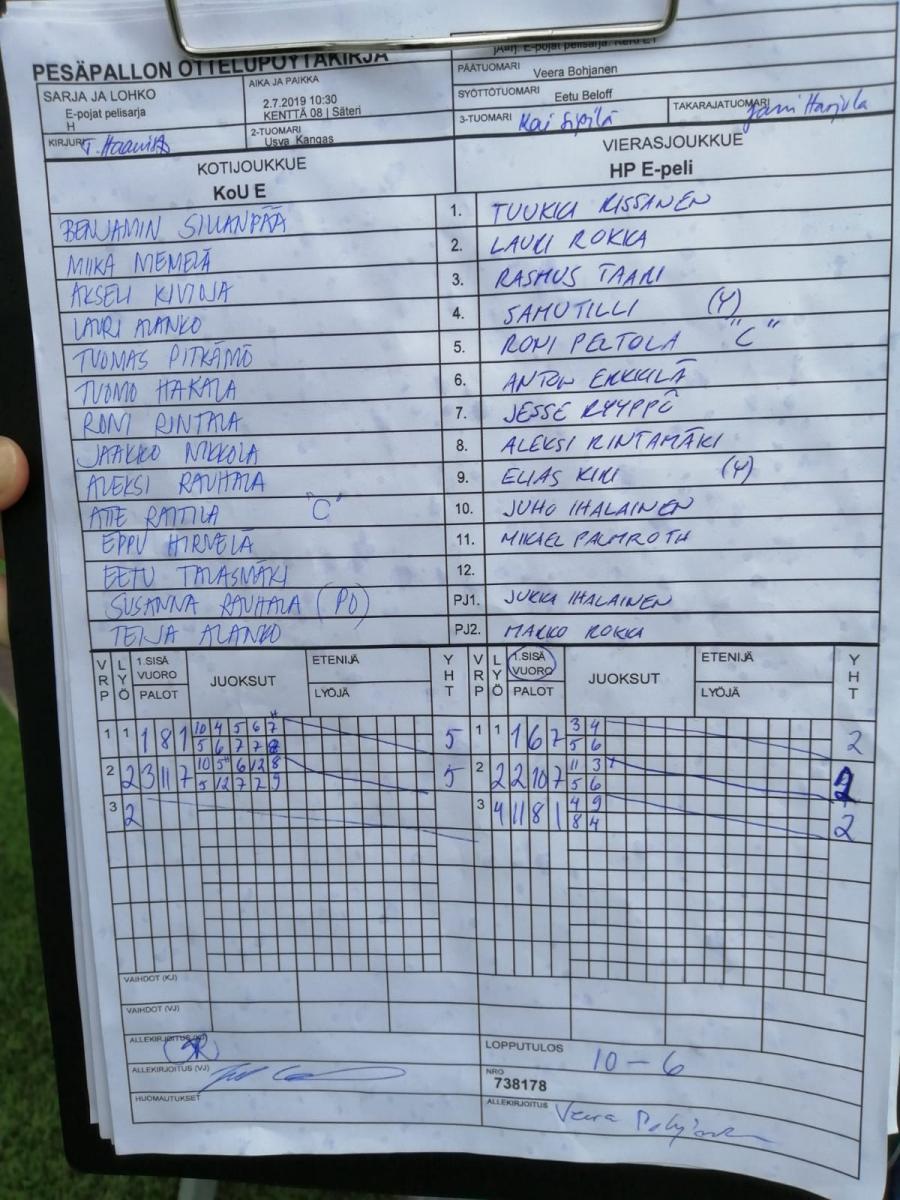 PESÄPALLON OTTELUPÖYTÄKIRJA
E-pojat pelisarja
SARJA JA LOHKO
E-pojat pelisarja
H
AIKA JA PAIKKA
2.7.2019 10:30
KENTTÄ 08 | Säteri
PÄÄTUOMARI Veera Bohjanen
SYÖTTÖTUOMARI Eetu Beloff
KIRJURI T.
2-TUOMARI
Usva Kangas
3-TUOMARI Kai Sipilä
TAKARAJATUOMARI Jani Harjula
KOTIJOUKKUE
KoU E
VIERASJOUKKUE
HP E-peli
BENJAMIN SILLANPÄÄ 1. TUUKKA RISSANEN
MIIKA MEMELÄ 2. LAURI ROKKA
AKSELI KIVIOJA 3. RASMUS TAARI
LAURI ALANKO 4. SAMU TILLI (Y)
TUOMAS PITKÄMÖ 5. RONI PELTOLA "C"
TUOMO HAKALA 6. ANTON ERKKILÄ
RONI RINTALA 7. JESSE RYYPPÖ
JAAKKO NIKKOLA 8. ALEKSI RINTAMÄKI
ALEKSI RAUHALA 9. ELIAS KIRI (Y)
ATTE RAITILA "C" 10. JUHO IHALAINEN
EPPU HIRVELÄ 11. MIKAEL PALMROTH
EETU TALASMÄKI 12.
SUSANNA RAUHALA (PO) PJ1. JUKKA IHALAINEN
TEIJA ALANKO PJ2. MARKO ROKKA
VRP LYÖ 1.SISÄ VUORO PALOT JUOKSUT ETENIJÄ LYÖJÄ YHT VRP LYÖ 1.SISÄ VUORO PALOT JUOKSUT ETENIJÄ LYÖJÄ YHT
1 1 1 8 1 10 4 5 6 7 5 1 1 1 6 7 3 4 2
5 6 7 7 8 5 6
2 2 3 11 7 10 5 6 12 8 5 2 2 2 10 7 11 3 2
5 12 7 7 9 5 6
3 2 3 4 11 8 1 4 9 2
8 4
VAIHDOT (KJ)
VAIHDOT (VJ)
ALLEKIRJOITUS (KJ) SR
LOPPUTULOS 10-6
ALLEKIRJOITUS (VJ)
NRO
738178
HUOMAUTUKSET
ALLEKIRJOITUS Veera Bohjanen